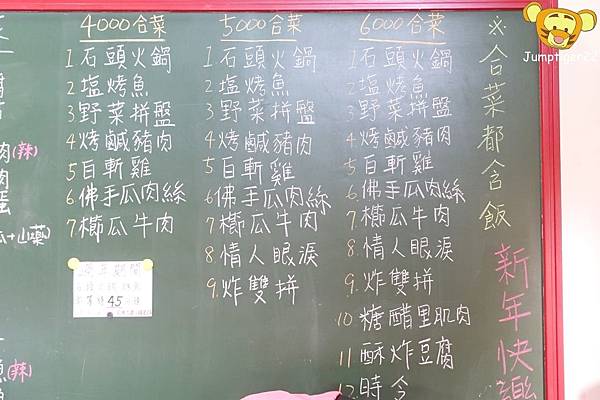 4000合菜
1石頭火鍋
2塩烤魚
3野菜拼盤
4烤鹹豬肉
5白斬雞
6佛手瓜肉絲
7櫛瓜牛肉
5000合菜
1石頭火鍋
2塩烤魚
3野菜拼盤
4烤鹹豬肉
5白斬雞
6佛手瓜肉絲
7櫛瓜牛肉
8.情人眼淚
9.炸雙拼
6000合菜
1石頭火鍋
2塩烤魚
3野菜拼盤
4烤鹹豬肉
5白斬雞
6.佛手瓜肉絲
7櫛瓜牛肉
8.情人眼淚
9.炸雙拼
10糖醋里肌肉
11酥炸豆腐
12時令
※合菜都含飯
新年快樂
肉(辣)
肉
蛋
瓜+山藥)
魚(辣)
期間
45
Jumptiger22